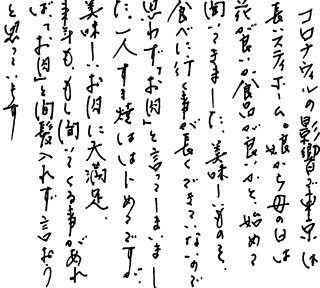 コロナウィルの影響で東京は
長いスティホーム。娘から母の日は
花が良いか食品が良いかと、始めて
聞いてきました。美味しいものを、
食べに行く事が長くできていないので
思わず「お肉」と言ってしまいまし
た。一人すき焼はじめてですが、
美味しいお肉に大満足。
来年も、もし聞いてくる事があれ
ば「お肉」と間髪入れず言おう
と思っています